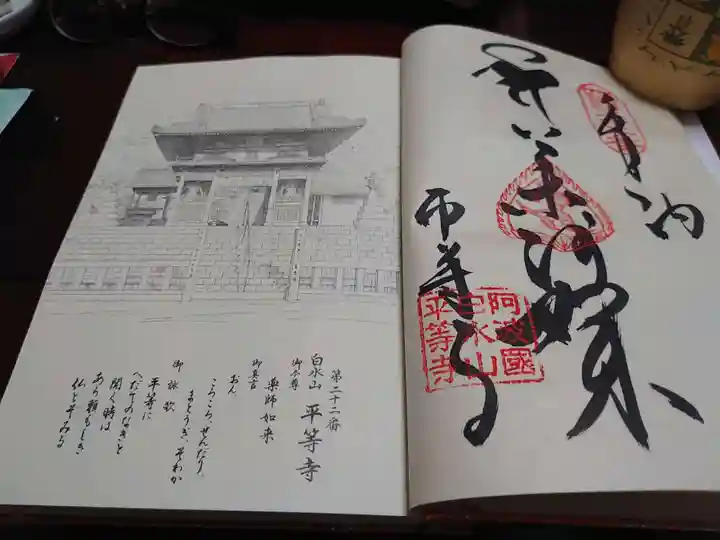 第二十二番
白水山 平等寺
御本尊
薬師如来
御真言
おん
ころころ、せんだり、
まとうぎ、そわか
御詠歌
平等に
へだてのなきと
聞く時は
あら頼もしき
仏とぞみる
奉納
薬師如来
平等寺
阿波國
白水山
平等寺